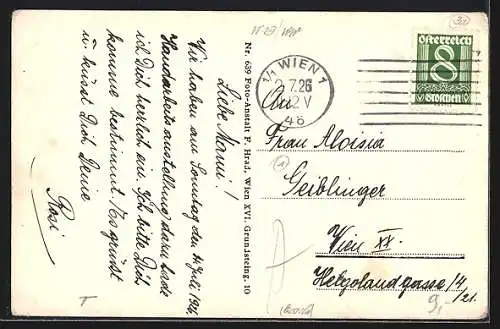 Liebe Mami!
Wir haben am Sonntag den 4. Juli 1926
Handarbeitsausstellung dazu lade
ich Dich herzlich ein. Ich bitte Dich
komme bestimmt! Es grüsst
u. küsst Dich Deine
Rosi
Nr. 639 Foto-Anstalt P. Hrad, Wien XVI, Grundsteing. 10
1/1 WIEN 1
7.26
48
Österreich
8
Groschen
An
Frau Aloisia
Geiblinger
Wien XX.
Helgolandgasse 14/
21.